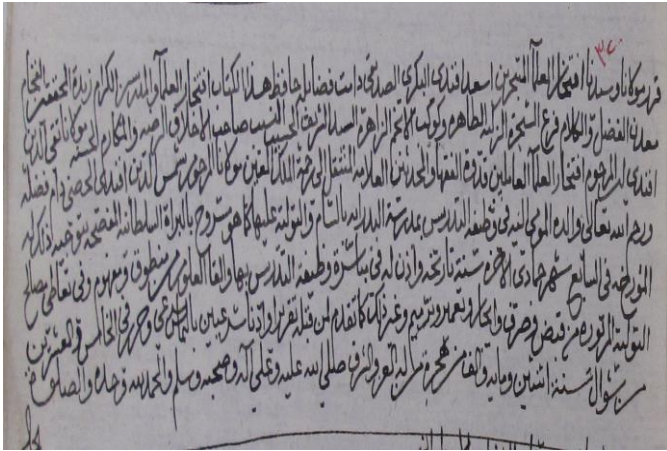 ٣٤٠
قرر مولانا وسيدنا افتخار العلما المتبحرين اسعد افندي البكري الصديقي دامت فضايله حافظ هذا الكتاب افتخار العلما والمدرسين الكرام زبدة المحققين الفخام
معدن الفضل والكلام فرع الشجرة الزكية الطاهره وكوكب الانجم الزاهرة السيد الشريف الحسيب النسيب صاحب الاخلاق الرضيه والمكارم الحسنه مولانا تقي الدين
افندي ابن المرحوم افتخار العلما العاملين قدوة الفقها والمحدثين العلامه المنتقل الى رحمة الملك المعين مولانا المرحوم شمس الدين افندي الحصني دام فضله
ورحم الله تعالى والده المومى اليه في وظيفة التدريس بمدرسة البدرايه بالشام والتولية عليها كما هو مشروح بالبراة السلطانيه المفصحه بتوجيه ذلك له
المورخه في السابع شهر جمادى الاخره سنة تاريخه واذن له في مباشرة وظيفة التدريس بها والقا العلوم من منطوق ومفهوم وفي تعاطي مصالح
التولية المزبوره من قبض وصرف وايجار وتعمير وترميم وغير ذلك كما تقدم لمن قبله تقريرا واذنا شرعيين بالتماس شرعي وحرر في الخامس والعشرين
من شوال سنة اثنين وماية والف من هجرة من له العز والشرف صلى الله عليه وعلى آله وصحبه وسلم والحمد لله وحده